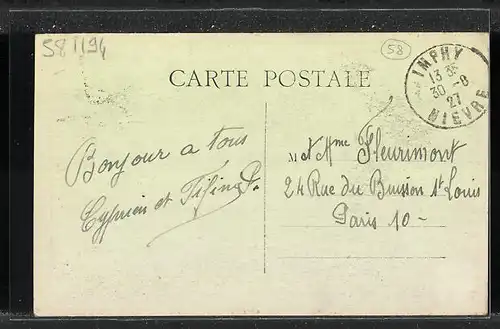 58 1194
58
IMPHY
13 35
30 -8
27
NIEVRE
CARTE POSTALE
Bonjour a tous
Cyprien et
M et Mme Fleurimont
24 Rue du Buisson St Louis
Paris 10 -